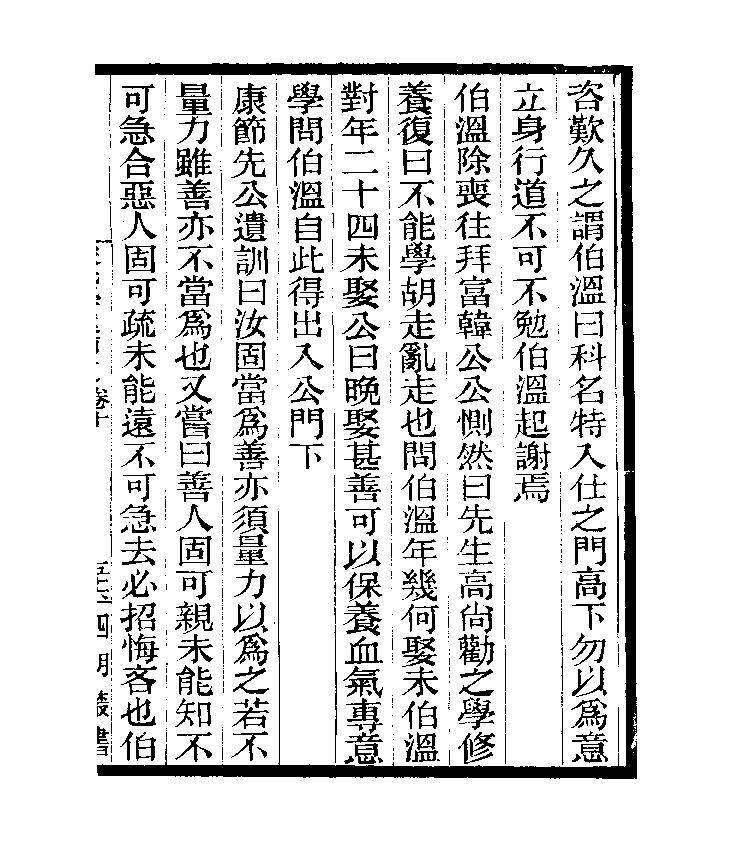 咨歎久之謂伯溫曰科名特入仕之門高下勿以爲意
立身行道不可不勉伯溫起謝焉
伯溫除喪往拜富韓公公惻然曰先生高尙勸之學修
養復曰不能學胡走亂走也問伯溫年幾何娶未伯溫
對年二十四未娶公曰晩娶甚善可以保養血氣專意
學問伯溫自此得出入公門下
康節先公遺訓曰汝固當爲善亦須量力以爲之若不
量力雖善亦不當爲也又嘗曰善人固可親未能知不
可急合惡人固可疏未能遠不可急去必招悔吝也伯
卷十
四明叢書